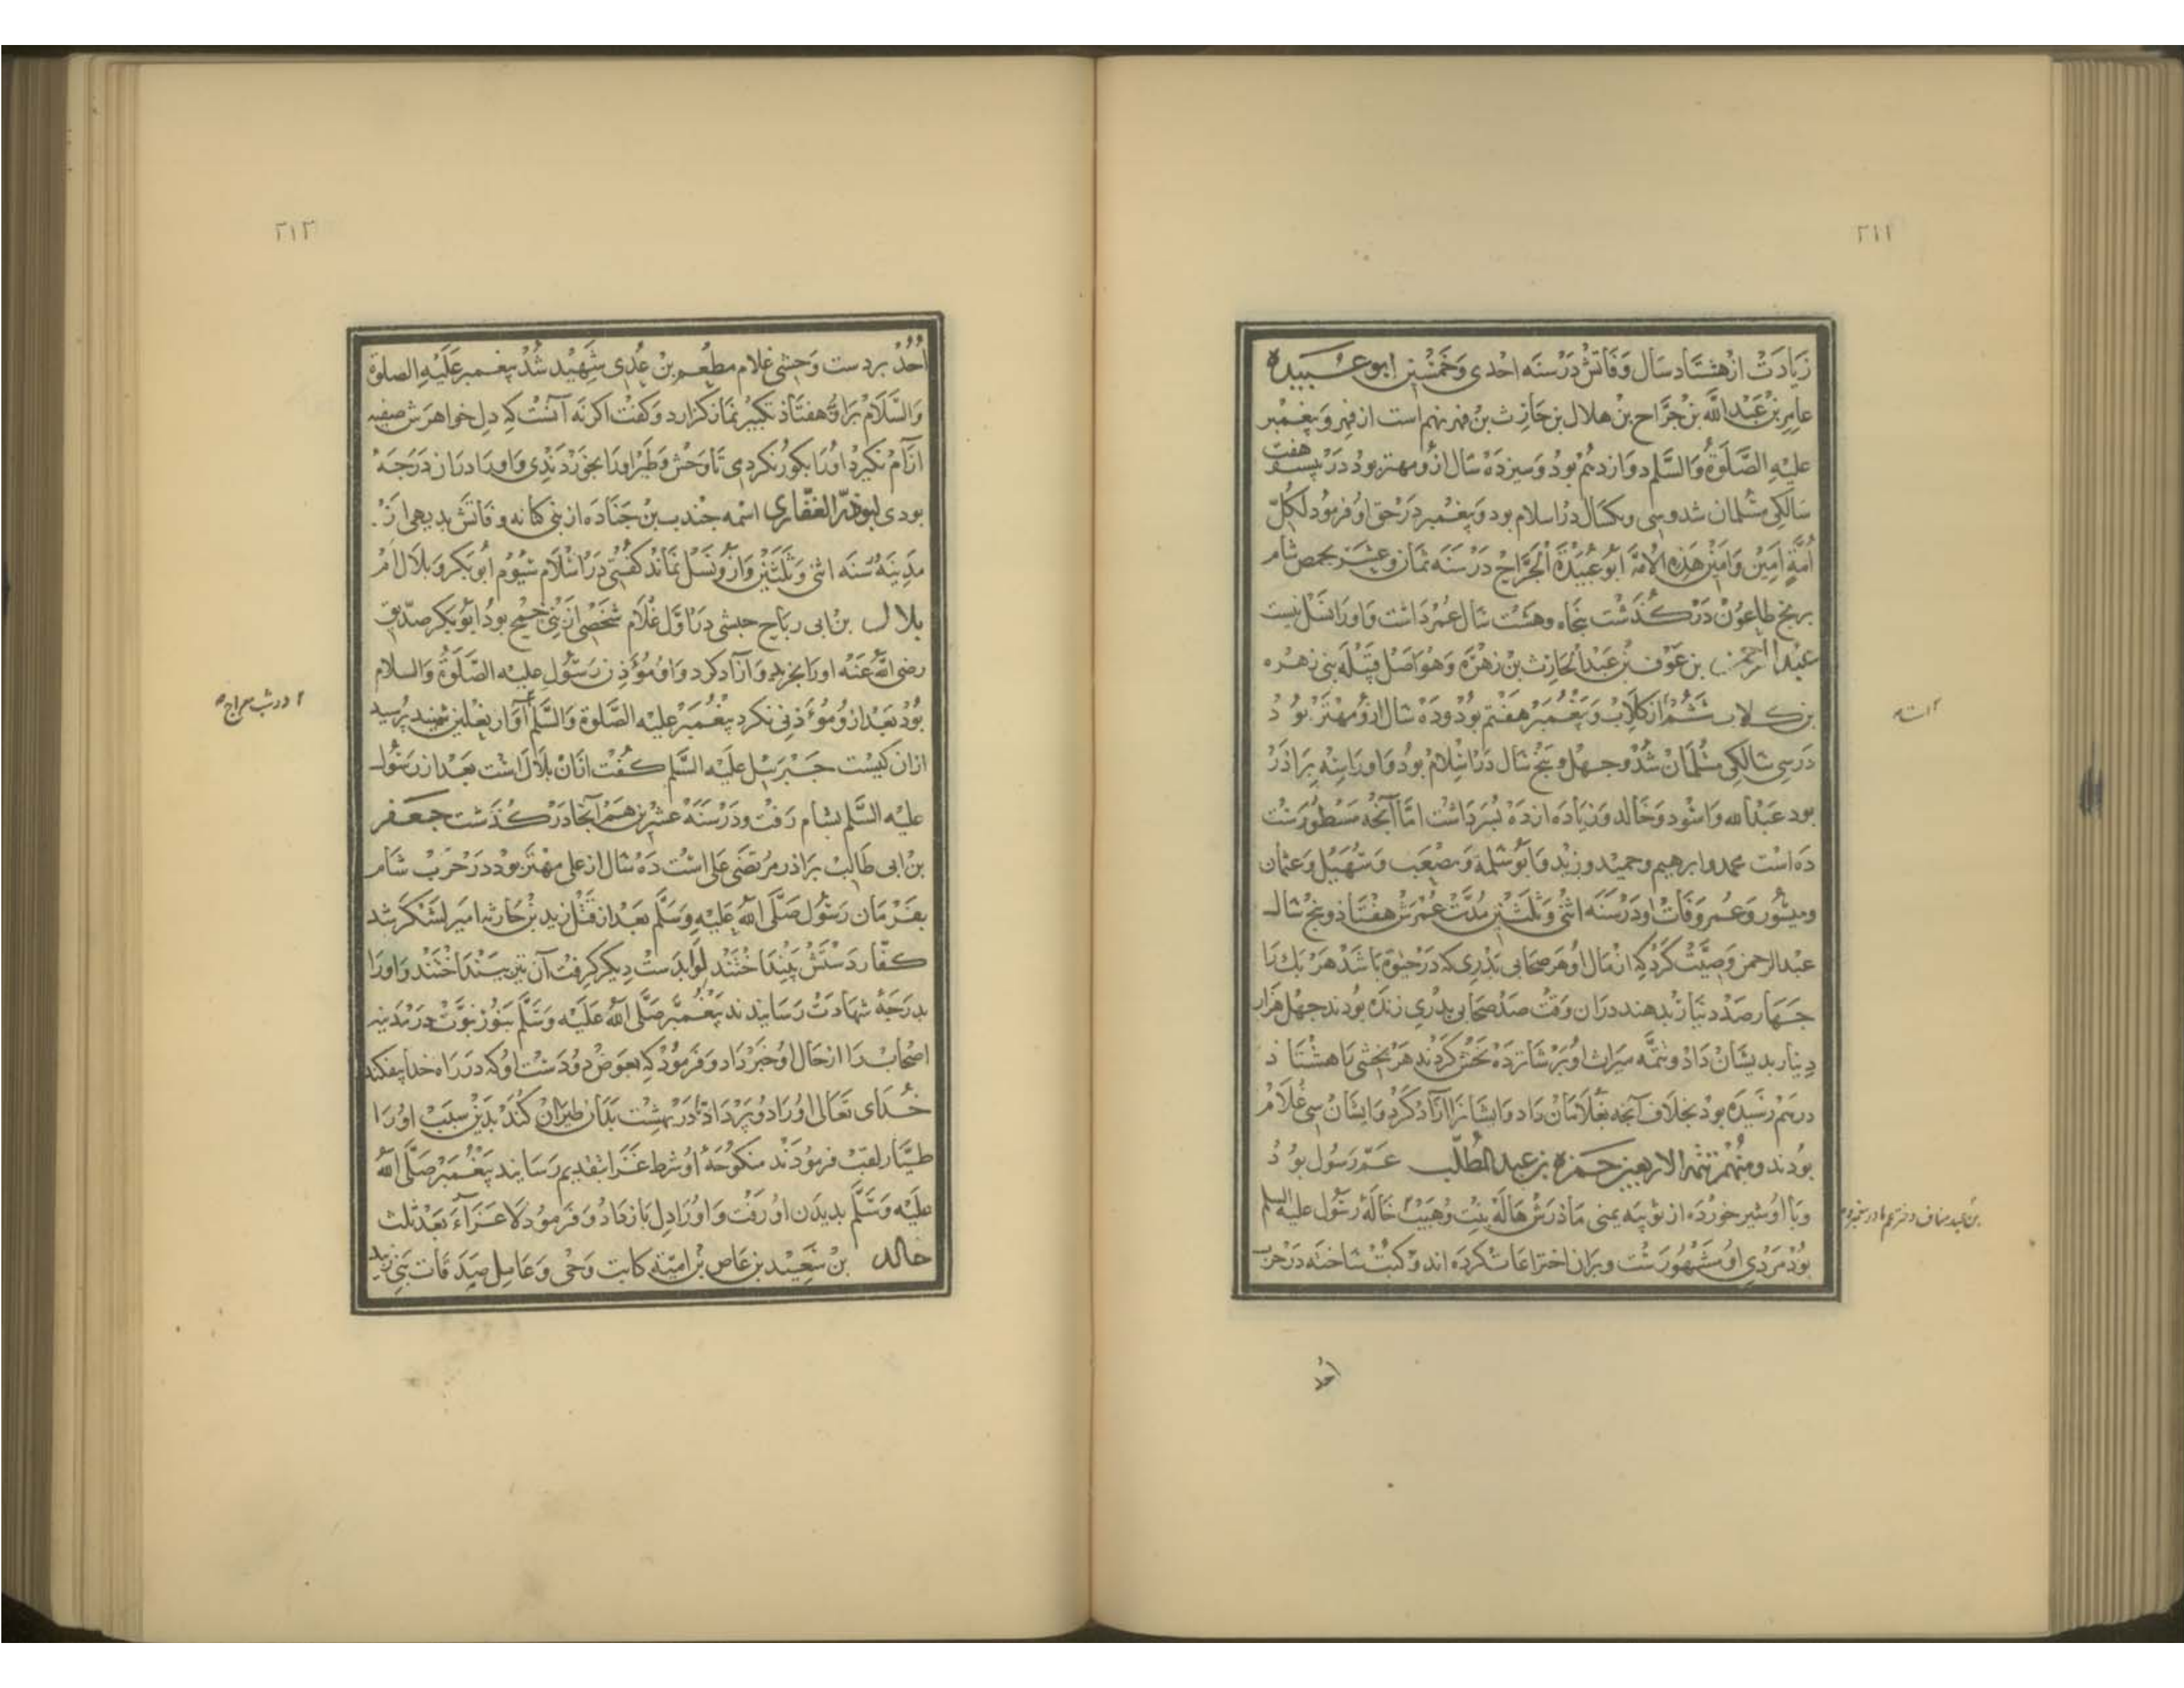 ۲۱۲
زیادت از هشتاد سال وفاتش در سنه احدی وخمسین ابو عبیده
عامر بن عبد الله بن جراح بن هلال بن حارث بن فهر نهم است از فهر و پیغمبر
علیه الصلوة والسلم دوازدهم بود و سیزده سال ازو مهتر بود در بیست هفت
سالکی مسلمان شد و سی ویکسال در اسلام بود و پیغمبر در حق او فرمود لکل
امة امین وامین هذه الامة ابو عبیدة الجراح در سنه ثمان وعشر بحمص شام
برنج طاعون در کذشت پنجاه وهشت سال عمر داشت و او را نسل نیست
عبد الرحمن بن عوف بن عبد الحارث بن زهره وهو اصل قبیله بنی زهره
بن کلاب ششم از کلاب و پیغمبر هفتم بود و ده سال ازو مهتر بود
در سی سالکی مسلمان شد و چهل و پنج سال در اسلام بود و او را سه براذر
بود عبد الله واسود وخالد و زیاده از ده پسر داشت اما آنچه مسطورست
ده است محمد وابرهیم وحمید وزید وابو سلمة ومصعب وسهیل وعثمان
ومیسور وعمر وفات او در سنه اثنی وثلثین مدت عمرش هفتاذ و پنج سال
عبد الرحمن وصیت کرد که از مال او هر صحابی بدری که در حیوة باشد هر یک را
چهار صد دینار بدهند دران وقت صد صحابی بدری زنده بودند چهل هزار
دینار بدیشان داد و تتمه میراث او بر شانزده بخش کردند هر بخشی با هشتاذ
درهم رسیده بود بخلاف آنچه بغلامان داد و ایشانرا آزاد کرد و ایشان سی غلام
بودند ومنهم تتمة الاربعین حمزه بن عبد المطلب عم رسول بود
و با او شیر خورده از ثویبه یمنی ماذرش هاله بنت وهیب خاله رسول علیه السلم
بن عبد مناف دختر عم مادر پیغمبر
بود مردی او مشهورست و بران اختراعات کرده اند و کتب ساخته در حرب
احد
۲۱۳
احد بر دست وحشی غلام مطعم بن عدی شهید شد پیغمبر علیه الصلوة
والسلام براو هفتاذ تکبیر نماز کزارد و کفت اکر نه آنست که دل خواهرش صفیه
آرام نکیرد او را بکور نکردی تا وحش وطیر او را بخوردندی و او را دران درجه
بودی ابوذر الغفاری اسمه جندب بن جناده از بنی کنانه وفاتش بدیهی از
مدینه سنه اثنی وثلثین و ازو نسل نماند کفتی در اسلام سیوم ابو بکر و بلال ام
بلال بن ابی رباح حبشی در اول غلام شخصی از بنی جمح بود ابو بکر صدیق
رضی الله عنه او را بخرید و آزاد کرد و او مؤذن رسول علیه الصلوة والسلام
بود بعد ازو مؤذنی نکرد پیغمبر علیه الصلوة والسلم آواز نعلین شنید پرسید
در شب معراج
ازان کیست جبرییل علیه السلم کفت ازان بلال است بعد از رسول
علیه السلم بشام رفت و در سنه عشرین هم آنجا در کذشت جعفر
بن ابی طالب براذر مرتضی علی است ده سال از علی مهتر بود در حرب شام
بفرمان رسول صلی الله علیه وسلم بعد از قتل زید بن حارثه امیر لشکر شد
کفار دستش بینداختند لوا بدست دیکر کرفت آن نیز بینداختند و او را
بدرجه شهادت رسانیدند پیغمبر صلی الله علیه وسلم بنور نبوت در مدینه
اصحاب را از حال او خبر داد و فرمود که بعوض دو دست او که در راه خدا بیفکند
خدای تعالی او را دو پر داد تا در بهشت بدان طیران کند بدین سبب او را
طیار لقب فرمودند منکوحه او شرط عزا بتقدیم رسانید پیغمبر صلی الله
علیه وسلم بدیدن او رفت و او را دل باز داد و فرمود لا عزاء بعد ثلث
خالد بن سعید بن عاص بن امیة کاتب وحی وعامل صدقات بنی زبید